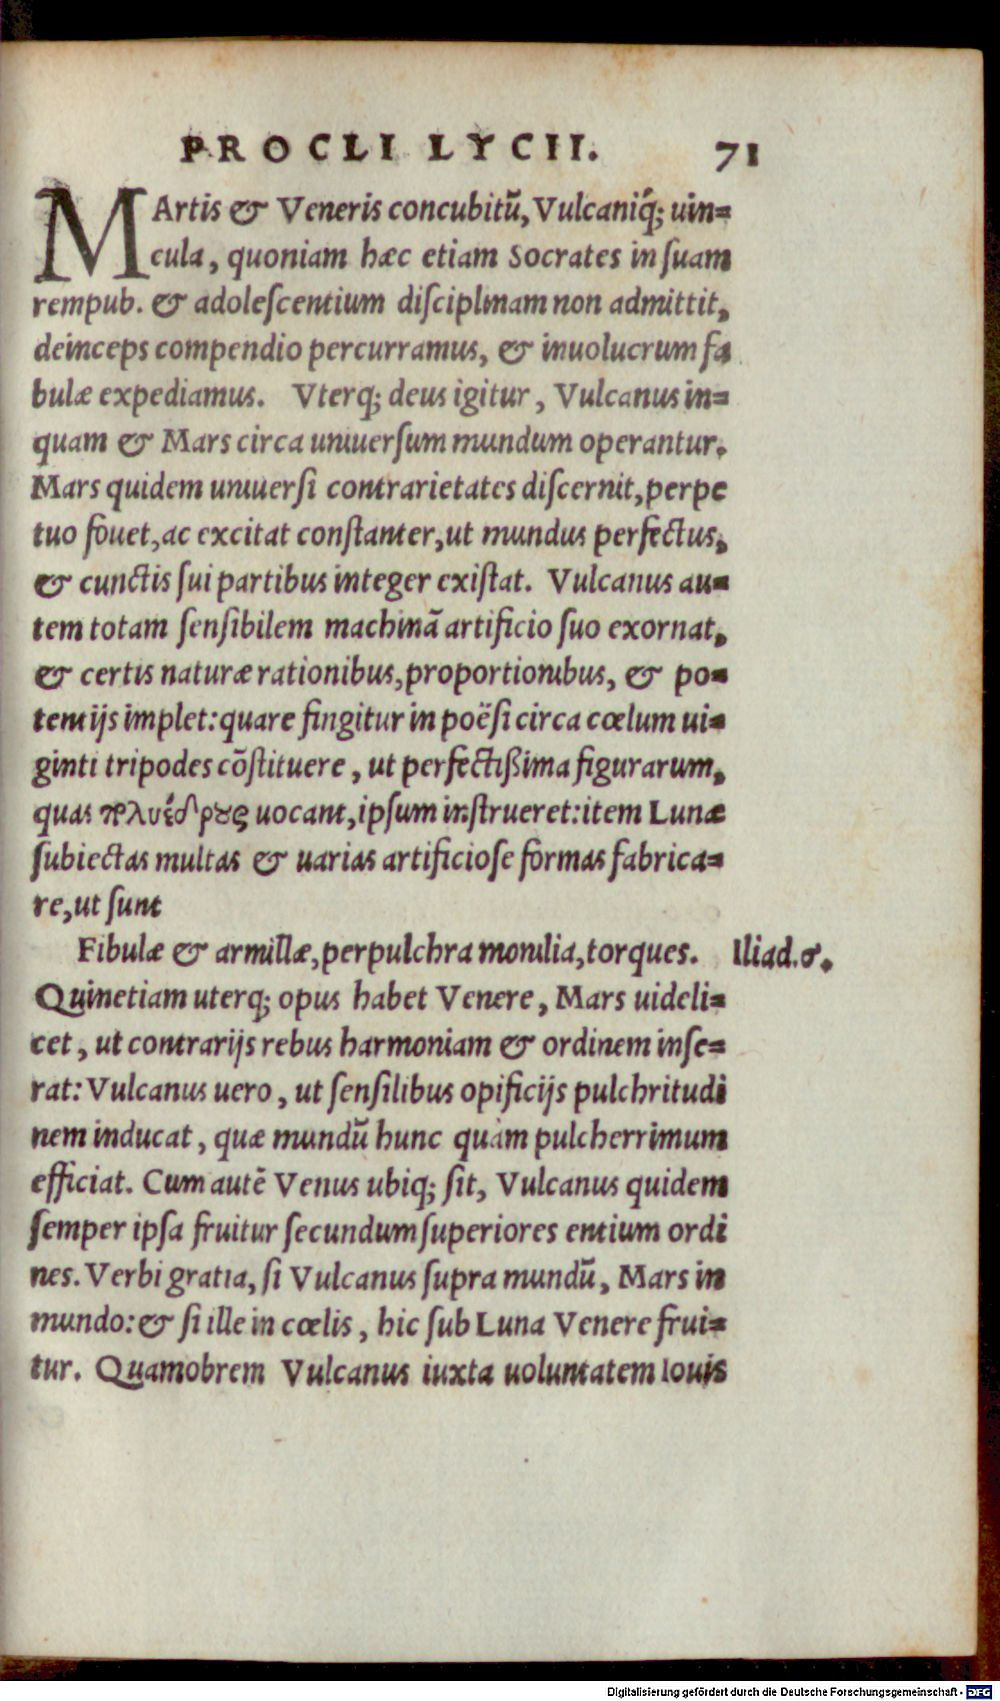 PROCLI LYCII. 71
MArtis & Veneris concubitũ, Vulcaniq́; uin=
cula, quoniam hæc etiam Socrates in ſuam
rempub. & adoleſcentium diſciplinam non admittit,
deinceps compendio percurramus, & inuolucrum fa
bulæ expediamus. Vterq; deus igitur, Vulcanus in=
quam & Mars circa uniuerſum mundum operantur.
Mars quidem uniuerſi contrarietates diſcernit, perpe
tuo fouet, ac excitat conſtanter, ut mundus perfectus,
& cunctis ſui partibus integer exiſtat. Vulcanus au=
tem totam ſenſibilem machinã artificio ſuo exornat,
& certis naturæ rationibus, proportionibus, & po=
tentijs implet: quare fingitur in poëſi circa cœlum ui=
ginti tripodes cõſtituere, ut perfectißima figurarum,
quas πολυέδρους uocant, ipſum inſtrueret: item Lunæ
ſubiectas multas & uarias artificioſe formas fabrica=
re, ut ſunt
Fibulæ & armillæ, perpulchra monilia, torques. Iliad. σ.
Quinetiam uterq; opus habet Venere, Mars uideli=
cet, ut contrarijs rebus harmoniam & ordinem inſe=
rat: Vulcanus uero, ut ſenſilibus opificijs pulchritudi
nem inducat, quæ mundũ hunc quàm pulcherrimum
efficiat. Cum autẽ Venus ubiq; ſit, Vulcanus quidem
ſemper ipſa fruitur ſecundum ſuperiores entium ordi
nes. Verbi gratia, ſi Vulcanus ſupra mundũ, Mars in
mundo: & ſi ille in cœlis, hic ſub Luna Venere frui=
tur. Quamobrem Vulcanus iuxta uoluntatem Iouis
Digitalisierung gefördert durch die Deutsche Forschungsgemeinschaft - DFG